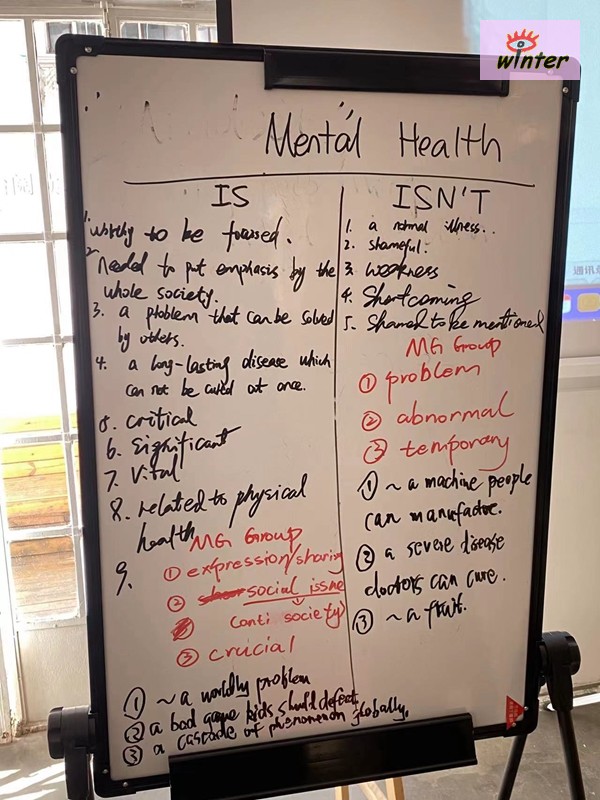 winter
Mental Health
IS
1. worthy to be focused.
2. Needed to put emphasis by the
whole society.
3. a problem that can be solved
by others.
4. a long-lasting disease which
can not be cured at once.
5. critical
6. significant
7. Vital
8. related to physical
health
9.
MG Group
① expression/sharing
② social issue
(anti society)
③ crucial
① ~ a worldly problem
② a bad game kids should defeat
③ a cascade of phenomenon globally.
ISN'T
1. a normal illness..
2. shameful.
3. weakness
4. Shortcoming
5. Shamed to be mentioned
MG Group
① problem
② abnormal
③ temporary
① ~ a machine people
can manufactor.
② a severe disease
doctors can cure.
③ ~ a fruit.